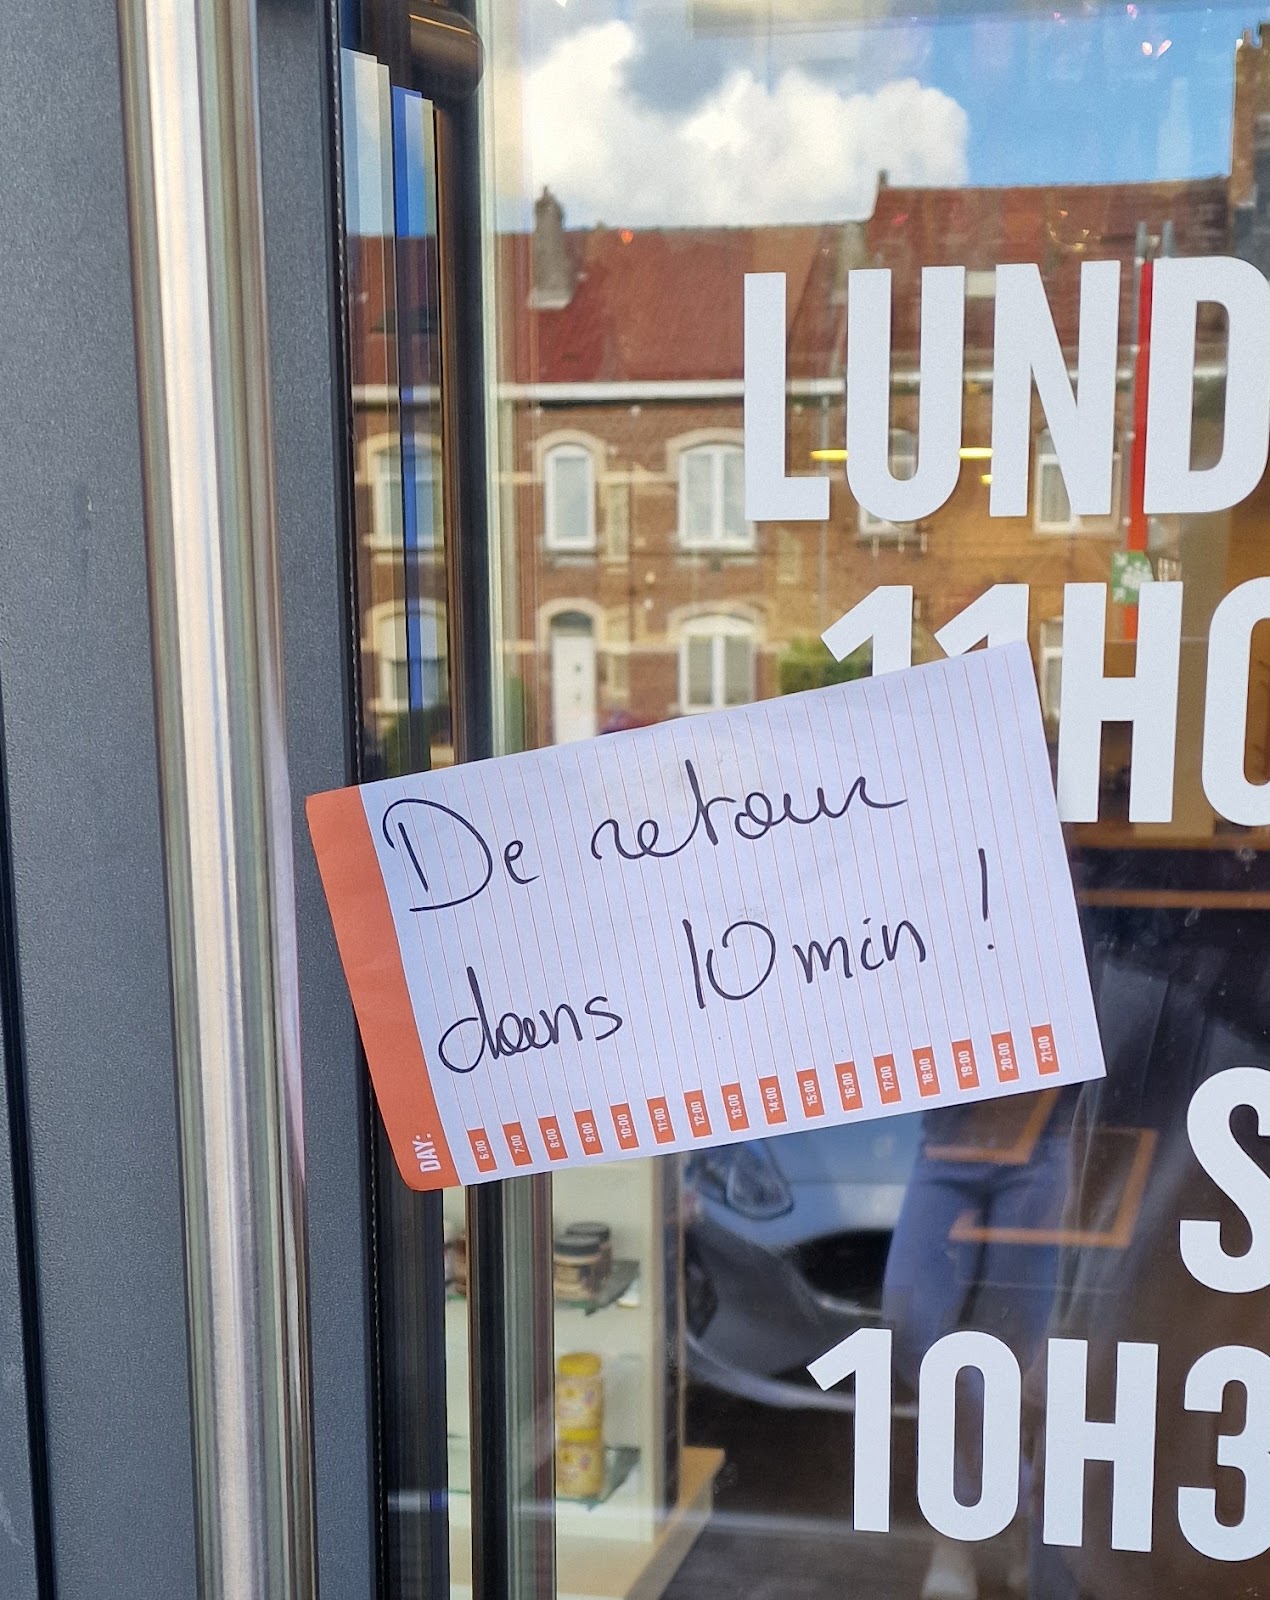 LUND
11H0
De retour
dans 10 min !
DAY:
6:00
7:00
8:00
9:00
10:00
11:00
12:00
13:00
14:00
15:00
16:00
17:00
18:00
19:00
20:00
21:00
S
10H3